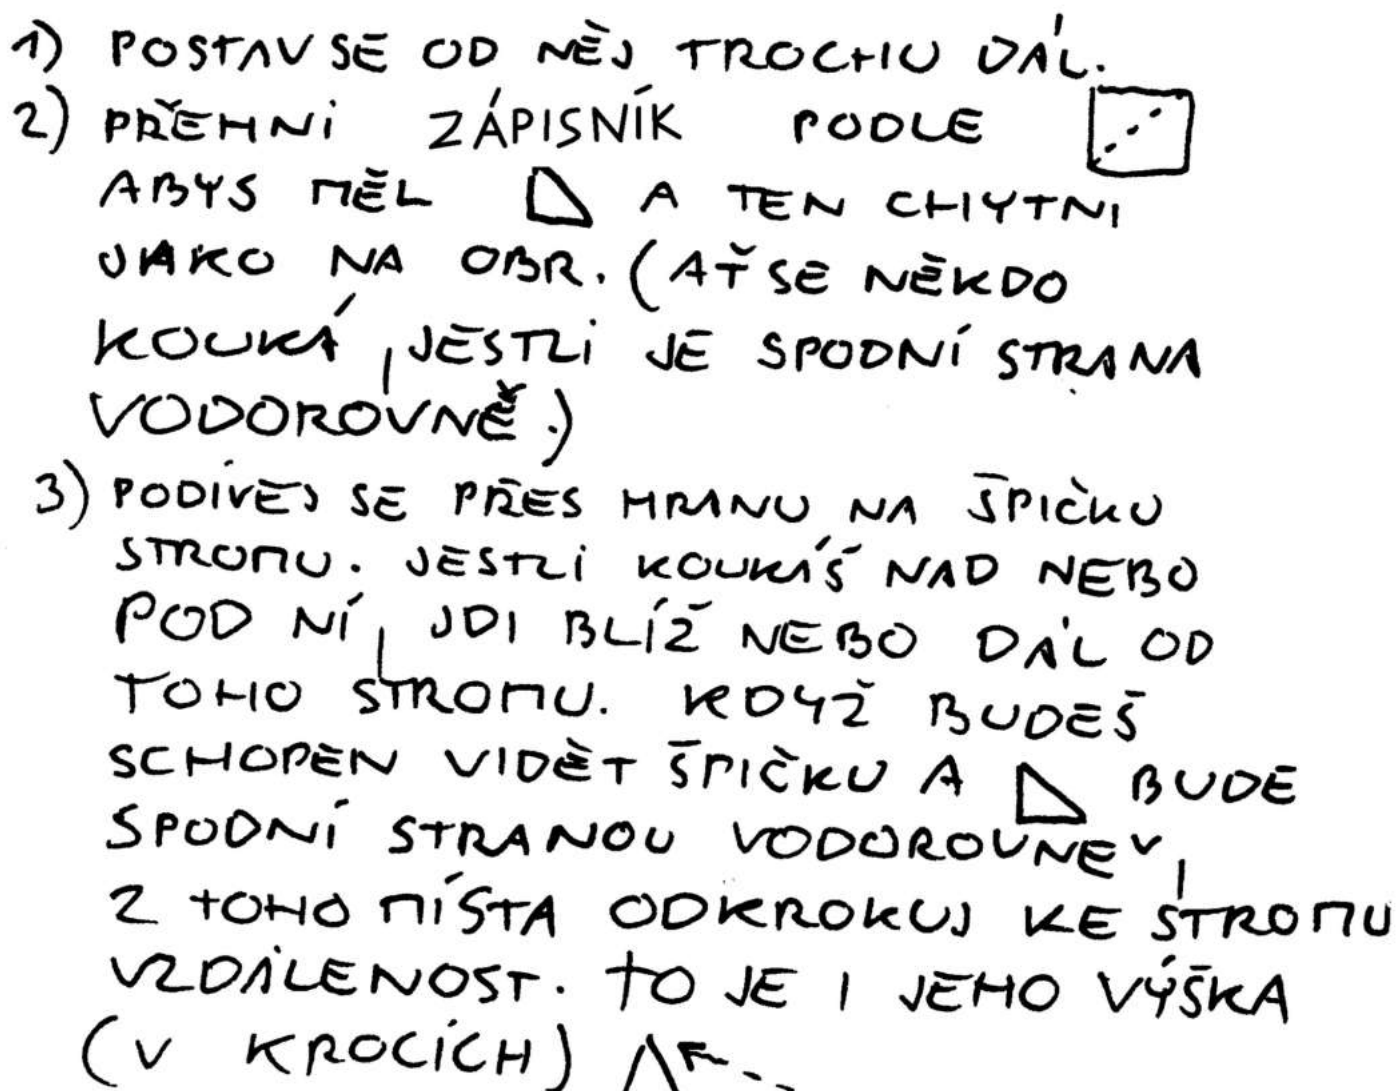 1) POSTAV SE OD NĚJ TROCHU DÁL.
2) PŘEHNI ZÁPISNÍK PODLE
ABYS MĚL A TEN CHYTNI
JAKO NA OBR. (AŤ SE NĚKDO
KOUKÁ, JESTLI JE SPODNÍ STRANA
VODOROVNĚ.)
3) PODÍVEJ SE PŘES HRANU NA ŠPIČKU
STROMU. JESTLI KOUKÁŠ NAD NEBO
POD NÍ, JDI BLÍŽ NEBO DÁL OD
TOHO STROMU. KDYŽ BUDEŠ
SCHOPEN VIDĚT ŠPIČKU A BUDE
SPODNÍ STRANOU VODOROVNĚ,
Z TOHO MÍSTA ODKROKUJ KE STROMU
VZDÁLENOST. TO JE I JEHO VÝŠKA
(V KROCÍCH)